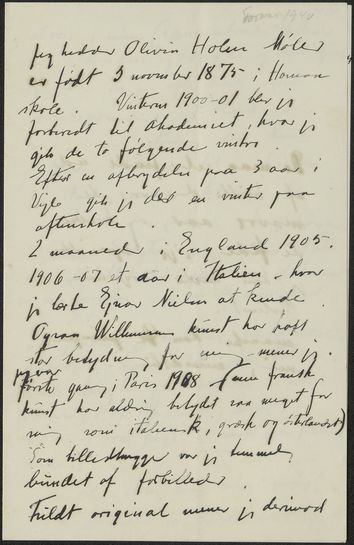 1940
Jeg hedder Olivia Holm Møller
er født 5 november 1875 i Homaa
skole. Vinteren 1900-01 blev jeg
forberedt til Akademiet, hvor jeg
gik de to følgende vintre.
Efter en afbrydelse paa 3 aar i
Vejle gik jeg der en vinter paa
aftenskole.
2 maaneder i England 1905.
1906-07 et aar i Italien - hvor
jeg lærte Ejnar Nielsen at kende.
Og saa Willumsens kunst har haft
stor betydning for mig - mener jeg.
jeg var
første gang i Paris 1908 (men fransk
kunst har aldrig betydet saa meget for
mig som italiensk, græsk og østerlandsk)
Som billedhugger var jeg temmelig
bundet af forbilleder.
Fuldt original mener jeg derimod